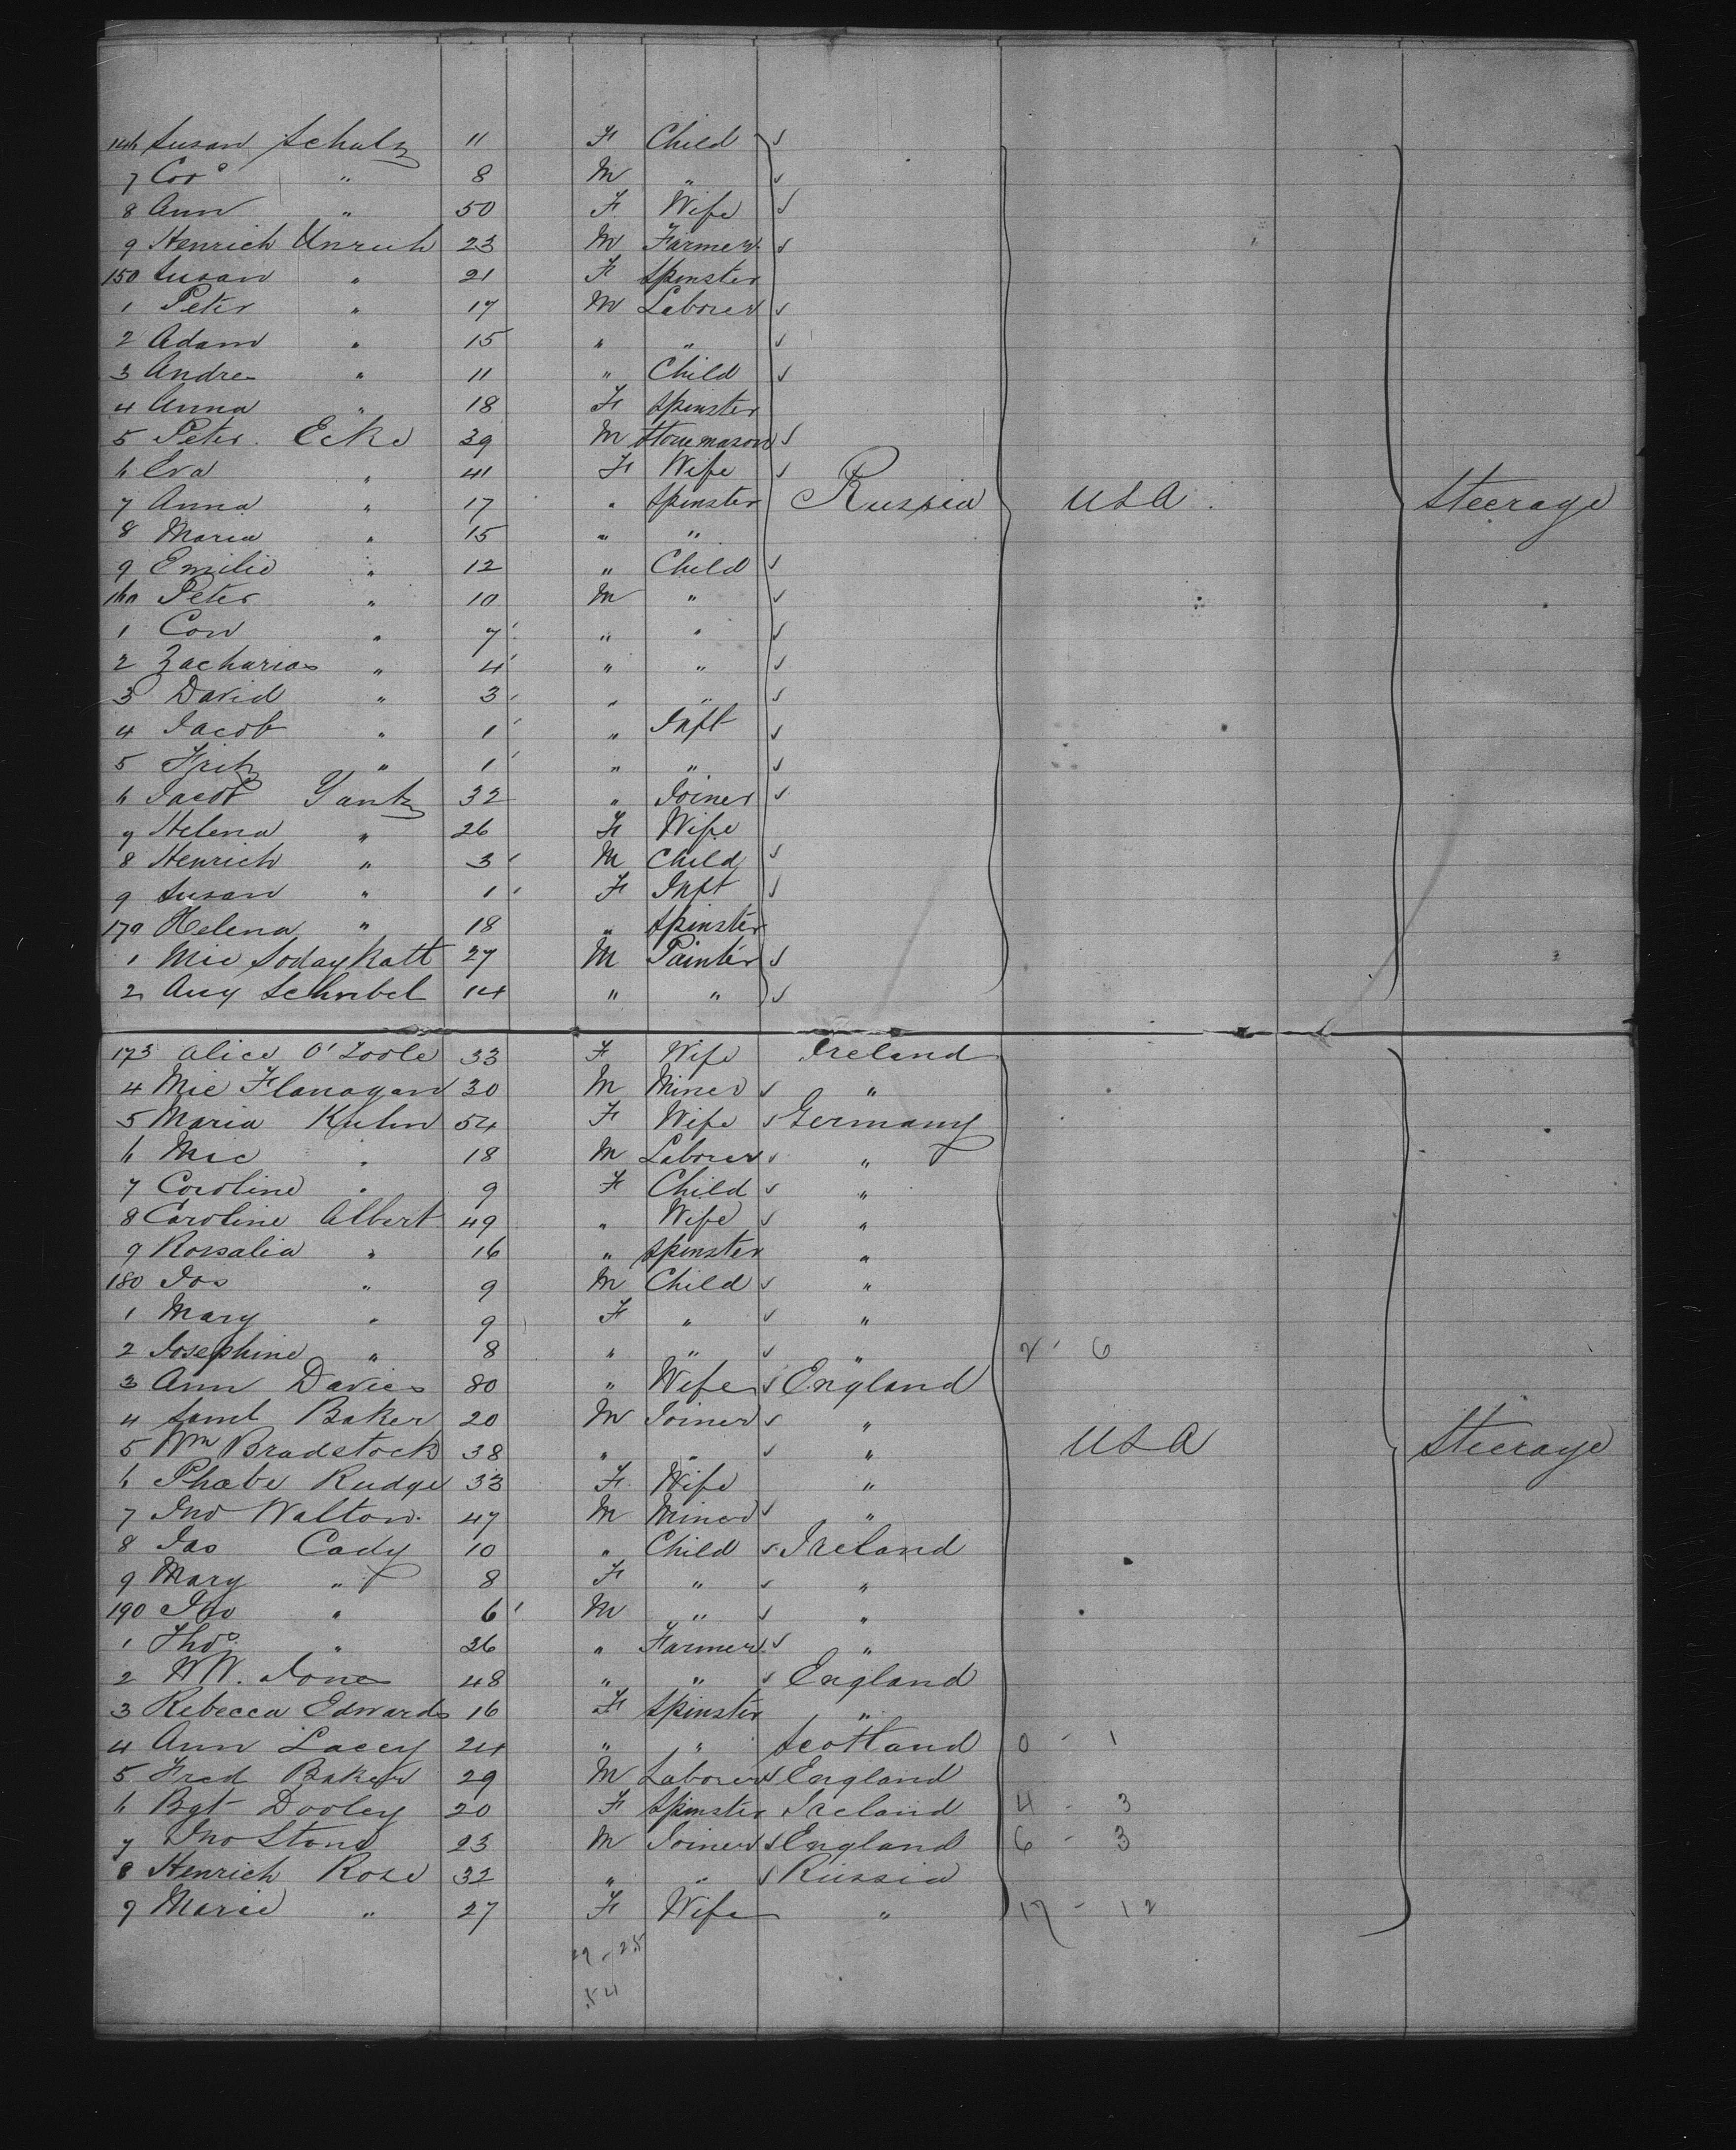 146 Susan Schulz 11 F Child
7 Cor° " 8 M "
8 Ann " 50 F Wife
9 Henrich Unruh 23 M Farmer
150 Susan " 21 F Spinster
1 Peter " 17 M Laborer
2 Adam " 15 " "
3 Andre " 11 " Child
4 Anna " 18 F Spinster
5 Peter Ecke 39 M Stonemason
6 Eva " 41 F Wife
7 Anna " 17 " Spinster Russia USA Steerage
8 Maria " 15 " "
9 Emilie " 12 " Child
160 Peter " 10 M "
1 Cor " 7 " "
2 Zacharias " 4 " "
3 David " 3 " "
4 Jacob " 1 " Inft
5 Fritz " 1 " "
6 Jacob Yantz 32 " Joiner
7 Helena " 26 F Wife
8 Henrich " 3 M Child
9 Susan " 1 F Inft
170 Helena " 18 " Spinster
1 Mic 27 M Painter
2 Aug Schribel 14 " "
173 Alice O'Toole 33 F Wife Ireland
4 Mic Flanagan 30 M Miner "
5 Maria Kuhn 54 F Wife Germany
6 Mic " 18 M Laborer "
7 Caroline " 9 F Child "
8 Caroline Albert 49 " Wife "
9 Rossalia " 16 " Spinster "
180 Jos " 9 M Child "
1 Mary " 9 F " "
2 Josephine " 8 " " " 2 - 6
3 Ann Davies 80 " Wife England
4 Saml Baker 20 M Joiner "
5 Wm Bradstock 38 " " " USA Steerage
6 Phœbe Rudge 33 F Wife "
7 Jno Walton 47 M Miner "
8 Jas Cady 10 " Child Ireland
9 Mary " 8 F " "
190 Jno " 6 M " "
1 Tho° " 26 " Farmer "
2 W W. Jones 48 " " England
3 Rebecca Edwards 16 F Spinster "
4 Ann Lacey 24 " " Scotland 0 - 1
5 Fred Baker 29 M Laborer England
6 Bgt Dooley 20 F Spinster Ireland 4 - 3
7 Jno Stone 23 M Joiner England 6 - 3
8 Henrich Rose 32 " " Russia
9 Marie " 27 F Wife " 17 - 12
29 - 25
54